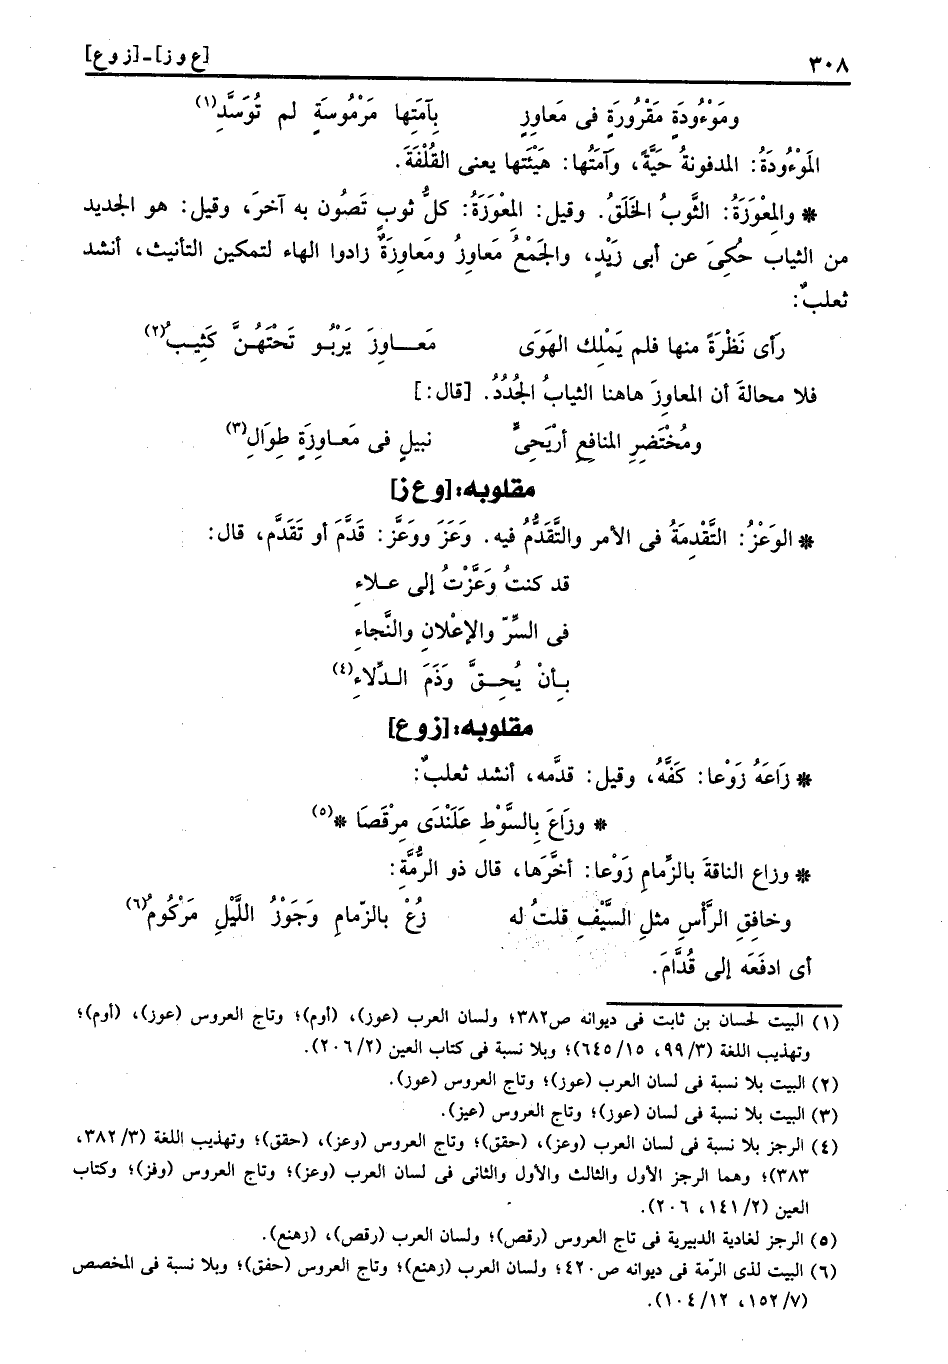 ٣٠٨ [ع و ز] - [ز و ع]
ومَوْءُودَةٍ مَقْرُورَةٍ فى مَعاوِزٍ بِآمَتِها مَرْمُوسَةٍ لم تُوَسَّدِ(١)
المَوْءُودَةُ: المدفونةُ حيَّةً، وآمَتُها: هَيْئَتها يعنى القُلْفَةَ.
* والمِعْوَزَةُ: الثَّوبُ الخَلَقُ. وقيل: المِعْوَزَةُ: كلُّ ثوبٍ تَصُون به آخرَ، وقيل: هو الجديد
من الثياب حُكِىَ عن أبى زَيْدٍ، والجَمْعُ مَعاوِزُ ومَعاوِزَةٌ زادوا الهاء لتمكين التأنيث، أنشد
ثعلبٌ:
رَأى نَظْرَةً منها فلم يَمْلِك الهَوَى مَعـــاوِزَ يَرْبُــو تَحْتَهُــنَّ كَثِيــبُ(٢)
فلا محالةَ أن المعاوِزَ هاهنا الثيابُ الجُدُدُ. [قال:]
ومُحْتَضِرِ المنافِعِ أرْيَحِىٌّ نبيلٍ فى مَعـاوِزَةٍ طِوَالِ(٣)
مقلوبه: [و ع ز]
* الوَعْزُ: التَّقْدِمَةُ فى الأمر والتَّقَدُّمُ فيه. وَعَزَ ووَعَّزَ: قَدَّمَ أو تَقَدَّم، قال:
قد كنتُ وَعَّزْتُ إلى عـلاءِ
فى السِّرّ والإعْلانِ والنَّجاءِ
بـأنْ يُحِــقَّ وَذَمَ الــدِّلاءِ(٤)
مقلوبه: [ز و ع]
* زَاعَهُ زَوْعا: كَفَّهُ، وقيل: قدَّمه، أنشد ثعلبٌ:
* وزاعَ بِالسَّوْطِ عَلَنْدَى مِرْقَصَا *(٥)
* وزاع الناقةَ بالزِّمامِ زَوْعا: أخَّرَها، قال ذو الرُّمَّةِ:
وخافِقِ الرَّأسِ مثلِ السَّيْفِ قلتُ له زُعْ بالزّمامِ وَجَوْزُ اللَّيْلِ مَرْكُومُ(٦)
أى ادفَعَه إلى قُدَّامَ.
(١) البيت لحسان بن ثابت فى ديوانه ص٣٨٢؛ ولسان العرب (عوز)، (أوم)؛ وتاج العروس (عوز)، (أوم)؛
وتهذيب اللغة (٣/ ٩٩، ١٥/ ٦٤٥)؛ وبلا نسبة فى كتاب العين (٢/ ٢٠٦).
(٢) البيت بلا نسبة فى لسان العرب (عوز)؛ وتاج العروس (عوز).
(٣) البيت بلا نسبة فى لسان (عوز)؛ وتاج العروس (عيز).
(٤) الرجز بلا نسبة فى لسان العرب (وعز)، (حقق)؛ وتاج العروس (وعز)، (حقق)؛ وتهذيب اللغة (٣/ ٣٨٢،
٣٨٣)؛ وهما الرجز الأول والثالث والأول والثانى فى لسان العرب (وعز)؛ وتاج العروس (وفز)؛ وكتاب
العين (٢/ ١٤١، ٢٠٦).
(٥) الرجز لغادية الدبيرية فى تاج العروس (رقص)؛ ولسان العرب (رقص)، (زهنع).
(٦) البيت لذى الرّمة فى ديوانه ص٤٢٠؛ ولسان العرب (زهنع)؛ وتاج العروس (حفق)؛ وبلا نسبة فى المخصص
(٧/ ١٥٢، ١٢/ ١٠٤).